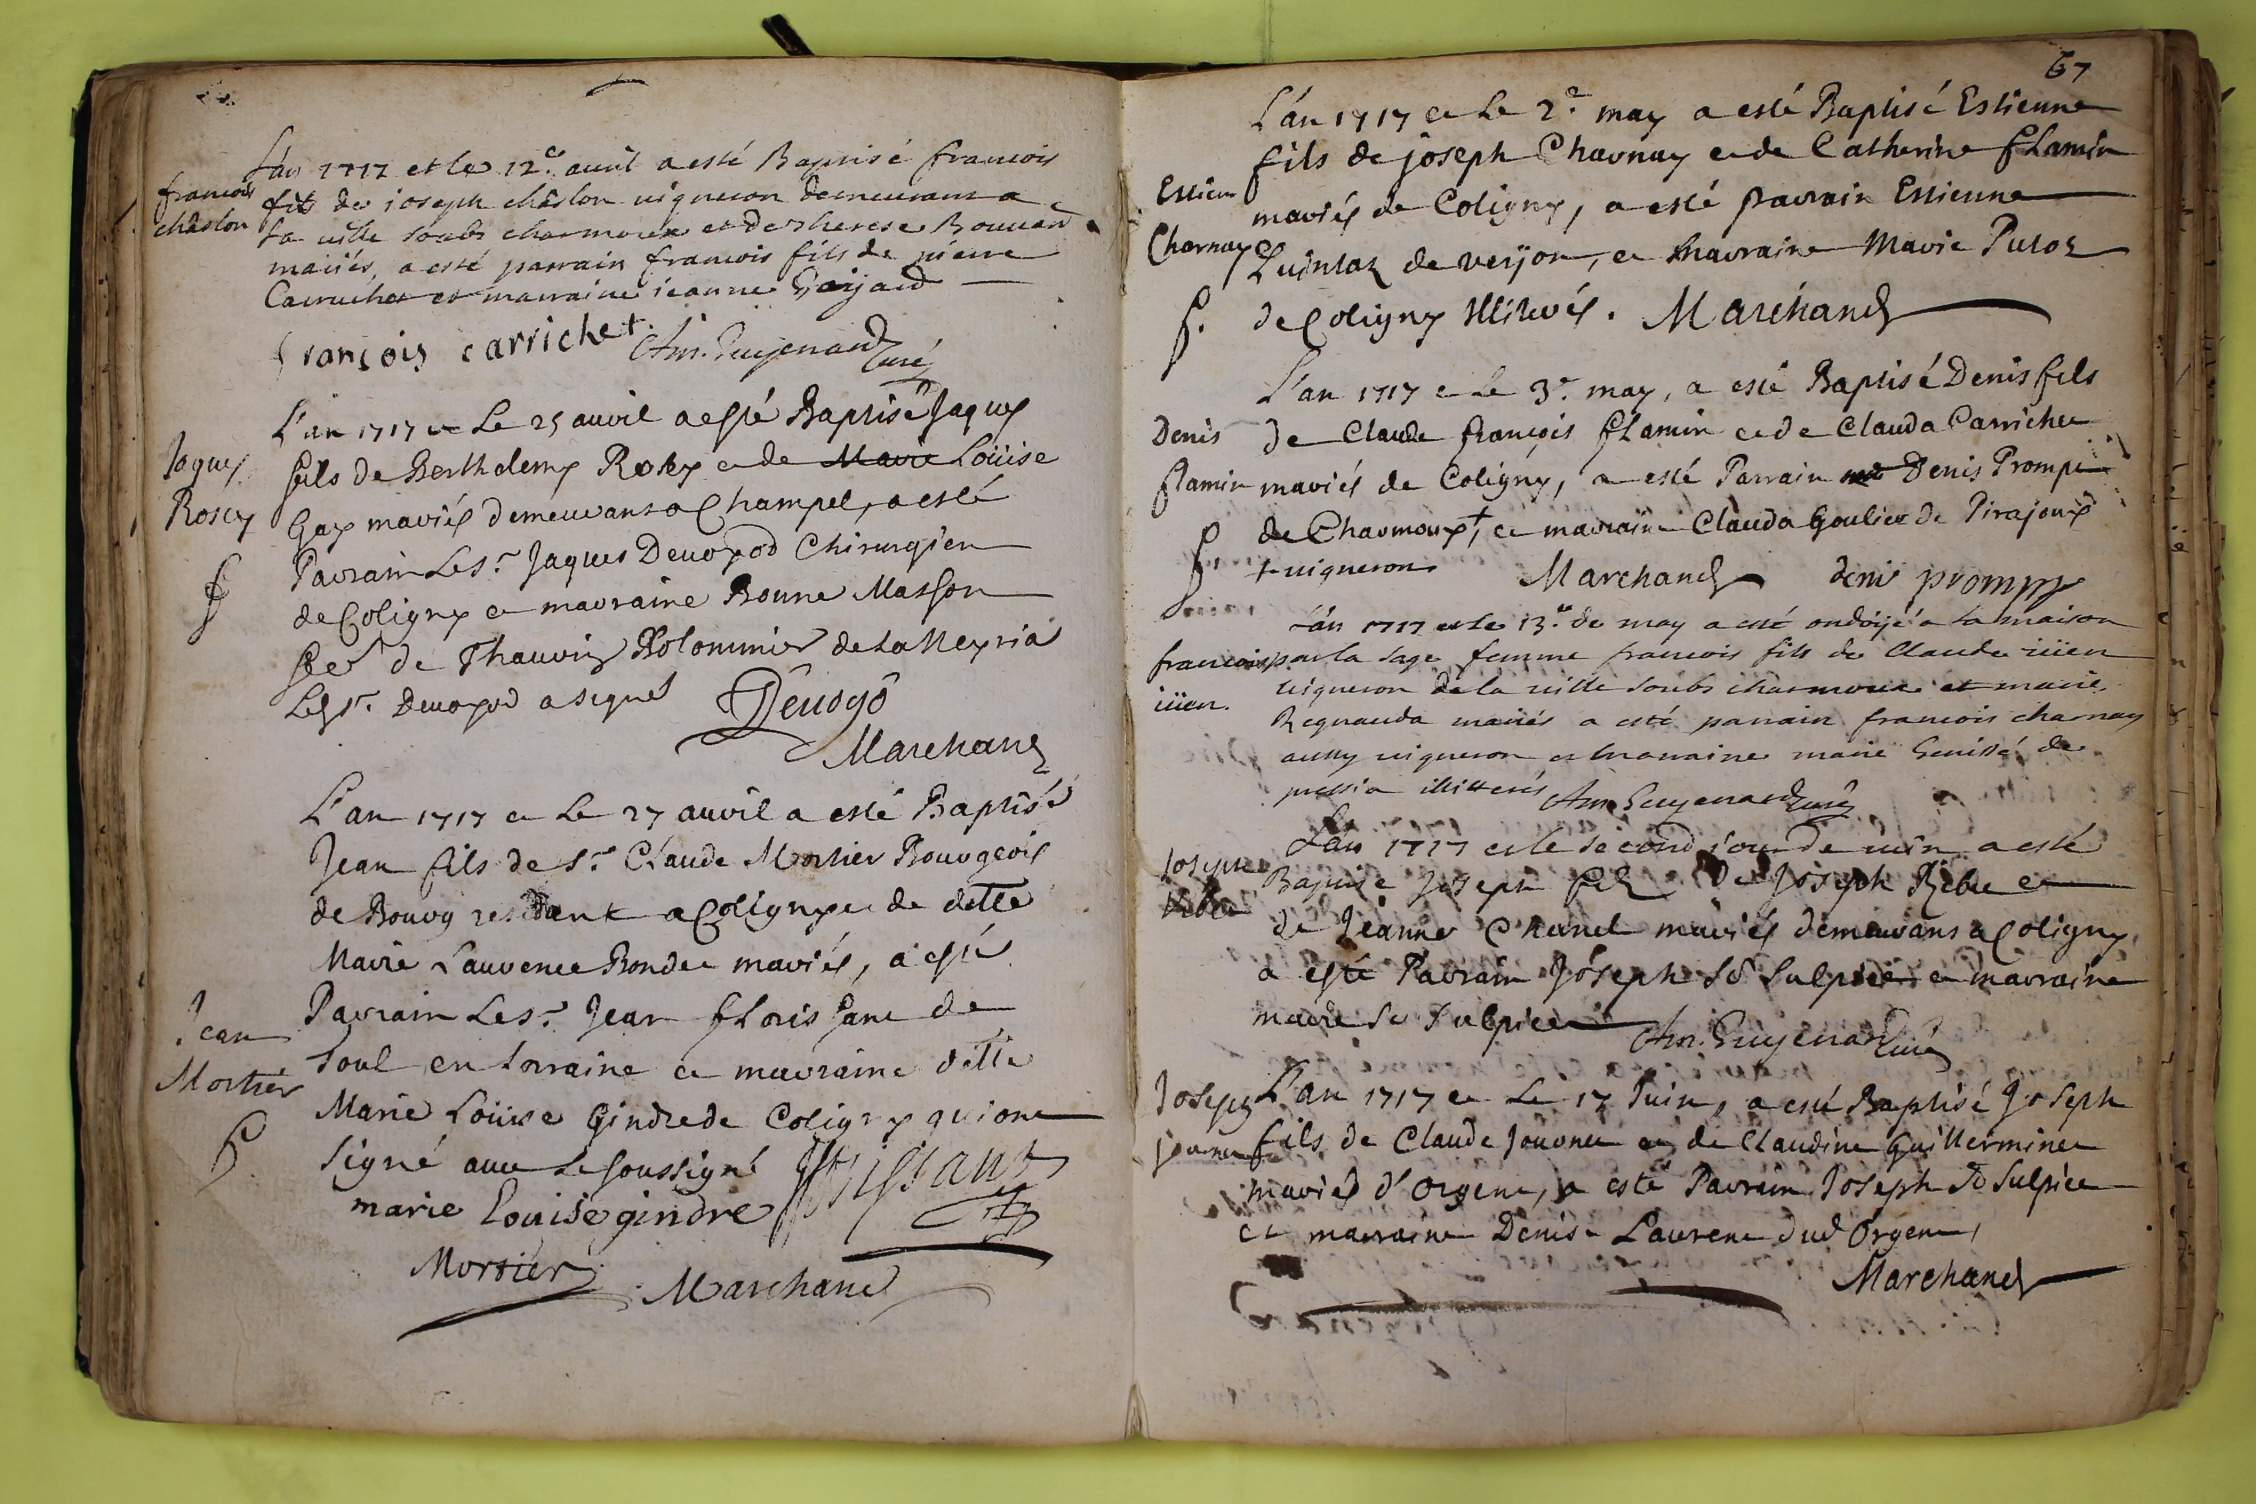 L'an 1717 et le 12e. auril a esté Baptisé francois
francois
châslon
fils de ioseph châslon uigneron demeurant a
La uille soubs charmoux et de therese Bouuard
mariés, a esté parrain francois fils de pierre
Carruchet et marraine ieanne
françois carrichet. Am. Guyenard
Curé
L'an 1717 et Le 25 auril a esté Baptisé Jaques
Jaques
Rosey
fils de Berthelemy Rosey et de Marie Loüise
Gay mariés demeurants a Champel, a esté
Parrain Le Sr. Jaques Deuoyod Chirurgien
de Coligny et marraine Bonne Masson
fe. de Thauvin Holommier de La Neyria
Le Sr. Deuoyod a signé
Deuoyo
Marchand
L'an 1717 et Le 27 auril a esté Baptisé
Jean fils de Sr. Claude Mortier Bourgeois
de Bourg residant a Coligny et de dtte
Marie Laurence Bondet mariés, a esté
Parrain Le Sr. Jean
Jean
Mortier
de
Toul en Lorraine et marraine dtte
Marie Loüise Gindre de Coligny qui ont
signé auec Le soussigné
marie Louise gindre
Mortier Marchand
67
L'an 1717 et Le 2e. may a esté Baptisé Estienne
fils de joseph Charnay et de Catherine flamin
Estienne
Charnay
mariés de Coligny, a esté parrain Estienne
de verjon, et marraine Marie Putoz
de Coligny illiterés. Marchand
L'an 1717 et Le 3e. may, a esté Baptisé Denis fils
Denis
flamin
de Claude françois flamin et de Clauda Carrichet
mariés de Coligny, a esté Parrain Denis Prompt
de Charmoux +, et marraine Clauda Goulier de Pirajoux
+ uigneron Marchand denis prompt
L'an 1717 et le 13e. de may a esté ondoijé a la maison
francois
iüien.
par la sage femme francois fils de Claude iüien
uigneron de la uille soubs charmoux et marie
Regnauda mariés a esté parrain francois charnay
aussy uigneron et marraine marie Genissé de
pressia illitterés Am Guyenard Curé
L'an 1717 et le second iour de iuin a esté
Ioseph
Baptise Joseph filz de Joseph Rebu et
de Jeanne Chanel mariés demeurans a Coligny
a esté Parrain Joseph St Sulpice et marraine
marie St Sulpice Am. Guyenard Curé
Joseph
Jouuenet
L'an 1717 et Le 17 Juin, a esté Baptisé Joseph
fils de Claude Jouvenet et de Claudine Guillerminet
mariés d'Orgent, a esté Parrain Joseph St Sulpice
et marraine Denise Laurent dud Orgent,
Marchand